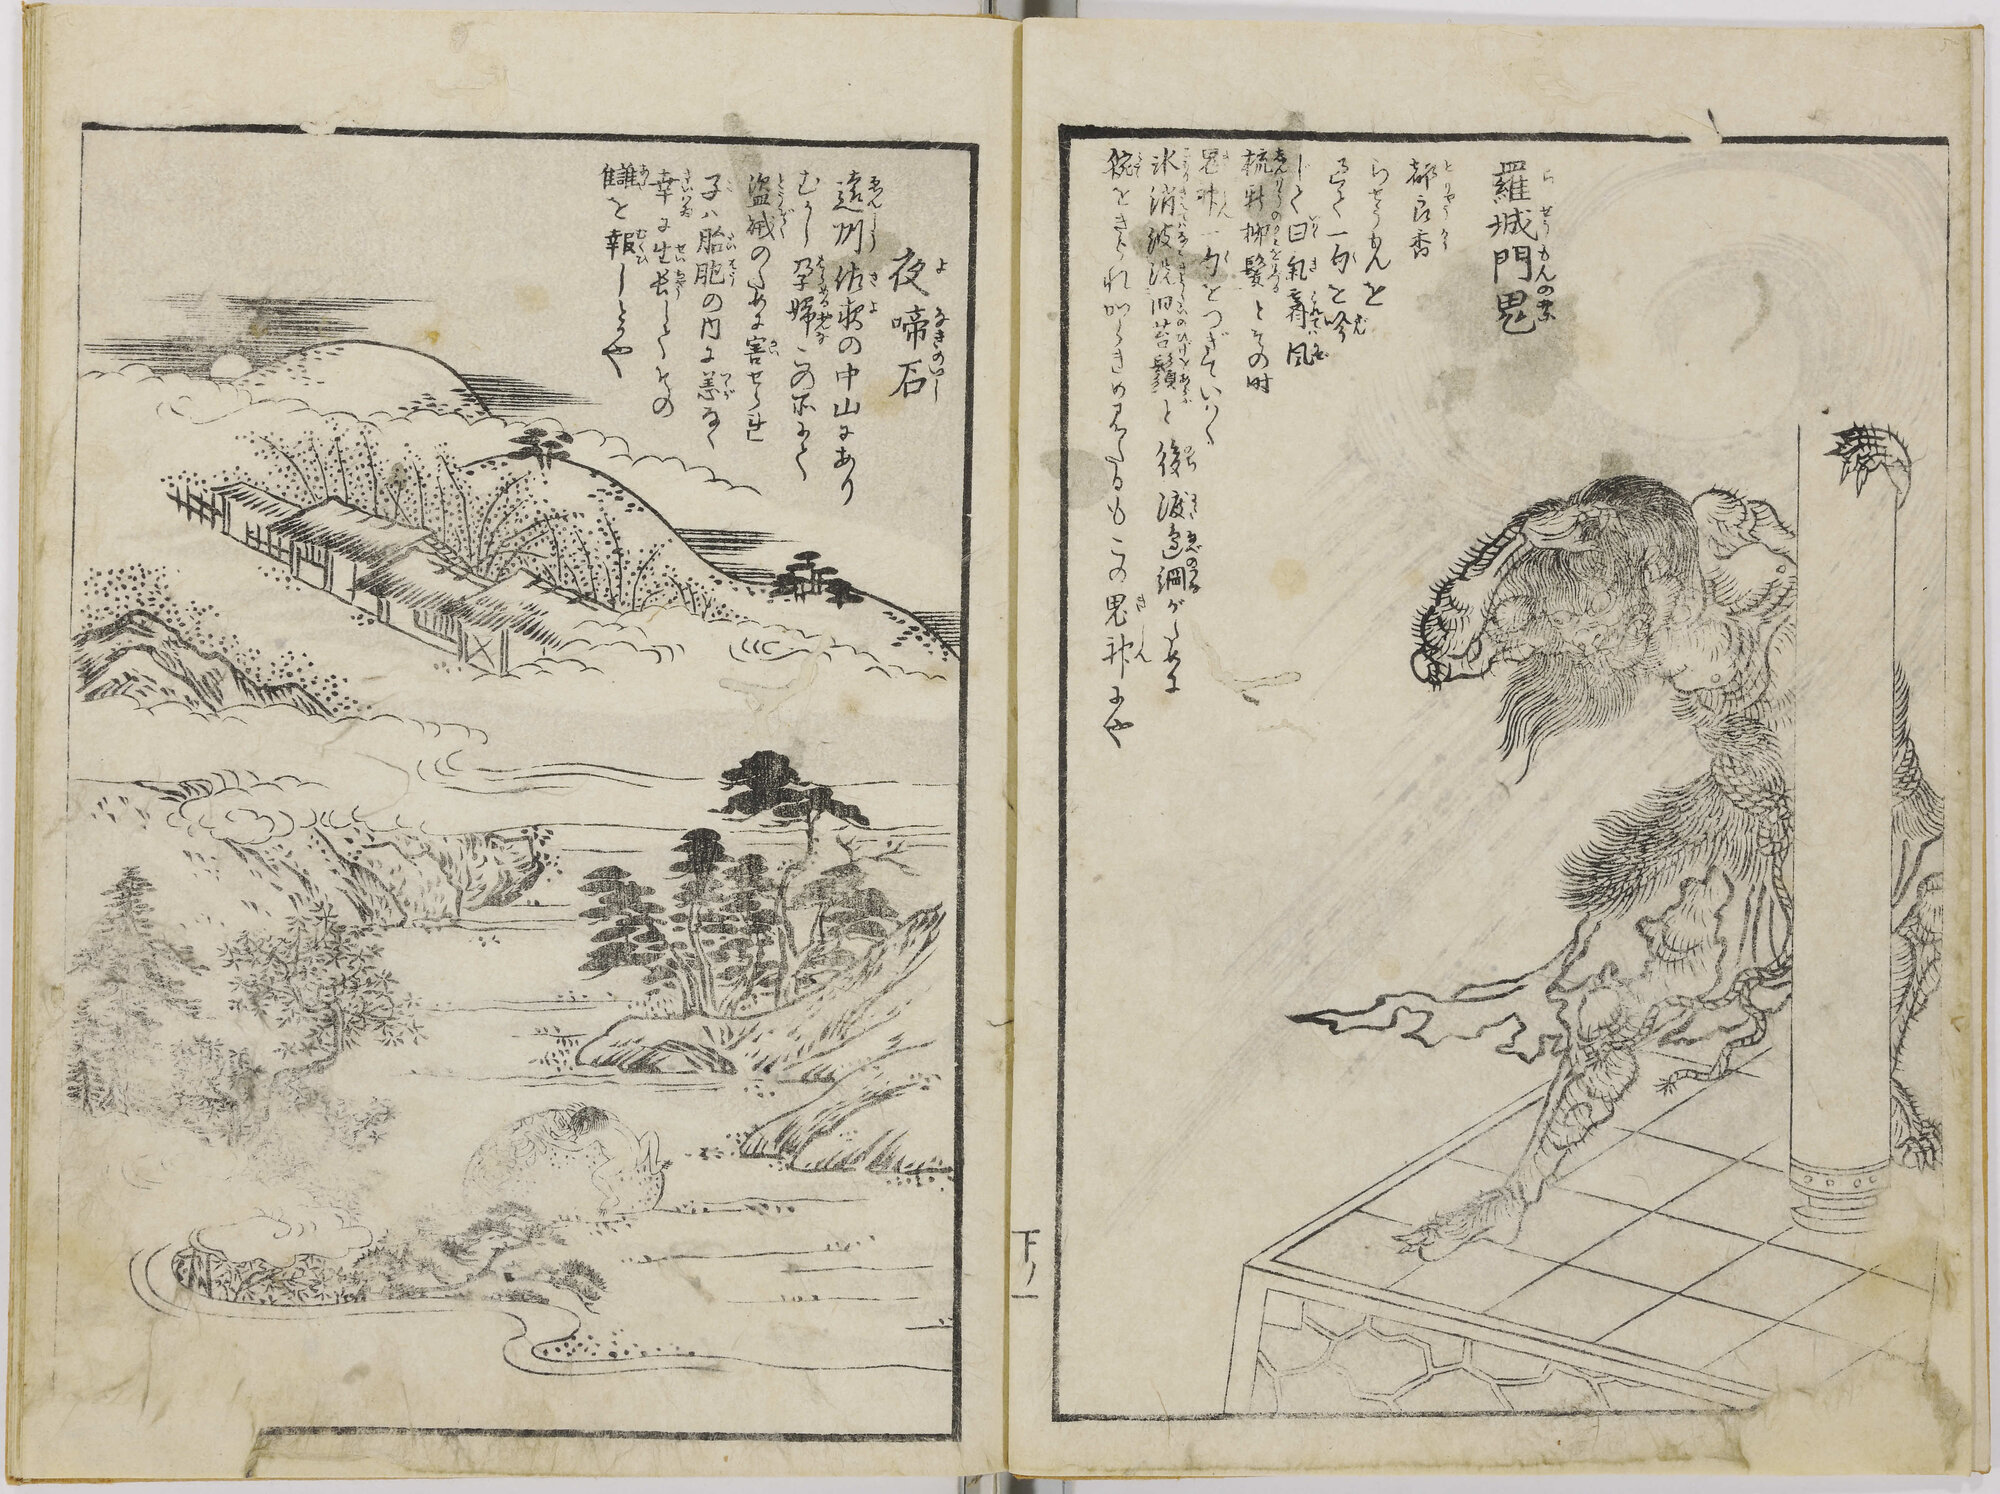 羅城門鬼
らせうもんのおに
都良香
とりやうきやう
らせうもんを
過て一句を吟
じて曰氣霽風
梳新柳髪とその時
鬼神一句をつぎていはく
氷消波洗旧苔鬚と後渡邉綱がために
腕をきられからきめ見たるもこの鬼神にや
きじん
下ノ一
夜啼石
よなきのいし
遠州佐夜の中山にあり
むかし孕婦この所にて
盗賊のために害せられ
子ハ胎胞の内に恙なく
幸に生長してその
讎を報しとかや